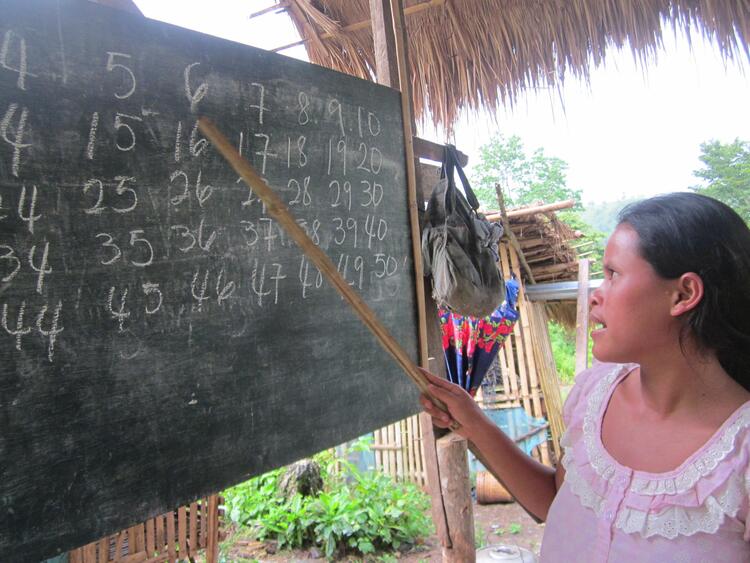 4 5 6 7 8 9 10
14 15 16 17 18 19 20
24 25 26 28 29 30
34 35 36 37 38 39 40
44 45 46 47 48 49 50